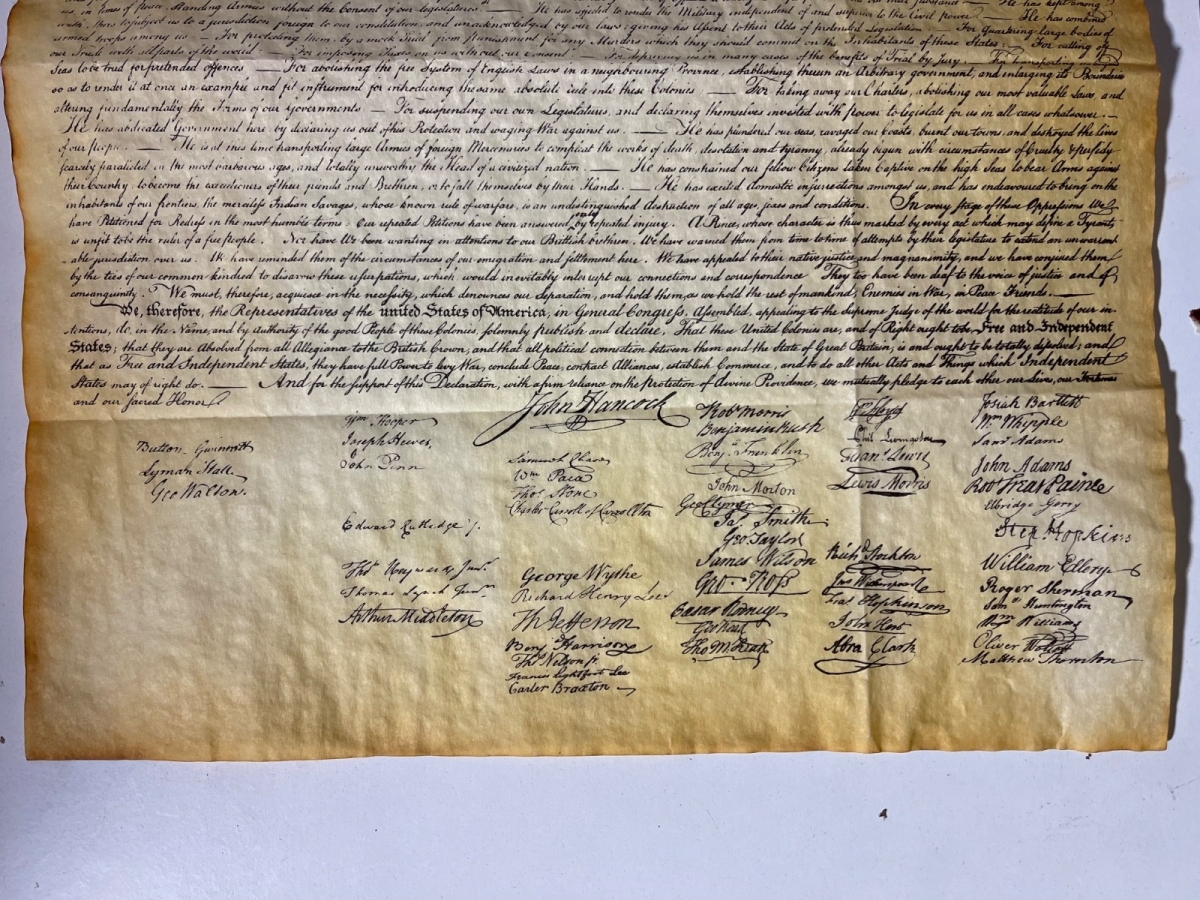 us, in times of peace, Standing Armies without the Consent of our legislatures. — He has affected to render the Military independent of and superior to the Civil power. — He has combined
with others to subject us to a jurisdiction foreign to our constitution, and unacknowledged by our laws; giving his Assent to their Acts of pretended Legislation: For Quartering large bodies of
armed troops among us: — For protecting them, by a mock Trial, from punishment for any Murders which they should commit on the Inhabitants of these States: — For cutting off
our Trade with all parts of the world: — For imposing Taxes on us without our Consent: — For depriving us in many cases, of the benefits of Trial by Jury: — For transporting us beyond
Seas to be tried for pretended offences — For abolishing the free System of English Laws in a neighbouring Province, establishing therein an Arbitrary government, and enlarging its Boundaries
so as to render it at once an example and fit instrument for introducing the same absolute rule into these Colonies — For taking away our Charters, abolishing our most valuable Laws, and
altering fundamentally the Forms of our Governments For suspending our own Legislatures, and declaring themselves invested with power to legislate for us in all cases whatsoever. —
He has abdicated Government here, by declaring us out of his Protection and waging War against us. — He has plundered our seas, ravaged our Coasts, burnt our towns, and destroyed the lives
of our people. — He is at this time transporting large Armies of foreign Mercenaries to compleat the works of death, desolation and tyranny, already begun with circumstances of Cruelty & perfidy
scarcely paralleled in the most barbarous ages, and totally unworthy the Head of a civilized nation. — He has constrained our fellow Citizens taken Captive on the high Seas to bear Arms against
their Country, to become the executioners of their friends and Brethren, or to fall themselves by their Hands. — He has excited domestic insurrections amongst us, and has endeavoured to bring on the
inhabitants of our frontiers, the merciless Indian Savages, whose known rule of warfare, is an undistinguished destruction of all ages, sexes and conditions. In every stage of these Oppressions We
have Petitioned for Redress in the most humble terms: Our repeated Petitions have been answered only by repeated injury. A Prince, whose character is thus marked by every act which may define a Tyrant,
is unfit to be the ruler of a free people. Nor have We been wanting in attentions to our Brittish brethren. We have warned them from time to time of attempts by their legislature to extend an unwarrant
able jurisdiction over us. We have reminded them of the circumstances of our emigration and settlement here. We have appealed to their native justice and magnanimity, and we have conjured them
by the ties of our common kindred to disavow these usurpations, which, would inevitably interrupt our connections and correspondence They too have been deaf to the voice of justice and of
consanguinity. We must, therefore, acquiesce in the necessity, which denounces our Separation, and hold them, as we hold the rest of mankind, Enemies in War, in Peace Friends. —
We, therefore, the Representatives of the united States of America, in General Congress, Assembled, appealing to the Supreme Judge of the world for the rectitude of our in-
tentions, do, in the Name, and by Authority of the good People of these Colonies, solemnly publish and declare, That these United Colonies are, and of Right ought to be Free and Independent
States; that they are Absolved from all Allegiance to the British Crown, and that all political connection between them and the State of Great Britain, is and ought to be totally dissolved; and
that as Free and Independent States, they have full Power to levy War, conclude Peace, contract Alliances, establish Commerce, and to do all other Acts and Things which Independent
States may of right do. — And for the support of this Declaration, with a firm reliance on the Protection of divine Providence, we mutually pledge to each other our Lives, our Fortunes
and our Sacred Honor.
Button Gwinnett
Lyman Hall
Geo Walton.
Wm Hooper
Joseph Hewes,
John Penn
Edward Rutledge
Thos Heyward Junr
Thomas Lynch Junr
Arthur Middleton
John Hancock
Samuel Chase
Wm Paca
Thos Stone
Charles Carroll of Carrollton
George Wythe
Richard Henry Lee
Th Jefferson
Benj Harrison
Thos Nelson jr.
Francis Lightfoot Lee
Carter Braxton
Robt Morris
Benjamin Rush
Benja Franklin
John Morton
Geo Clymer
Jas Smith
Geo Taylor
James Wilson
Geo Ross
Caesar Rodney
Geo Read
Tho M:Kean
Phil Livingston
Frans Lewis
Lewis Morris
Richd Stockton
Jno Witherspoon
Fras Hopkinson
John Hart
Abra Clark
Josiah Bartlett
Wm Whipple
Saml Adams
John Adams
Robt Treat Paine
Elbridge Gerry
Step Hopkins
William Ellery
Roger Sherman
Saml Huntington
Wm Williams
Oliver Wolcott
Matthew Thornton